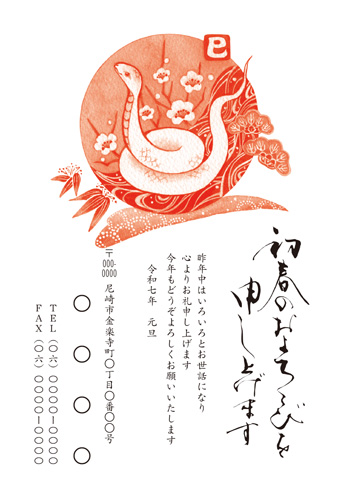 巳
初春のおよろこびを
申し上げます
昨年中はいろいろとお世話になり
心よりお礼申し上げます
今年もどうぞよろしくお願いいたします
令和七年　元旦
〒000-0000
尼崎市金楽寺町〇丁目〇番〇〇号
〇〇〇〇
TEL（〇六）〇〇〇〇―〇〇〇〇
FAX（〇六）〇〇〇〇―〇〇〇〇